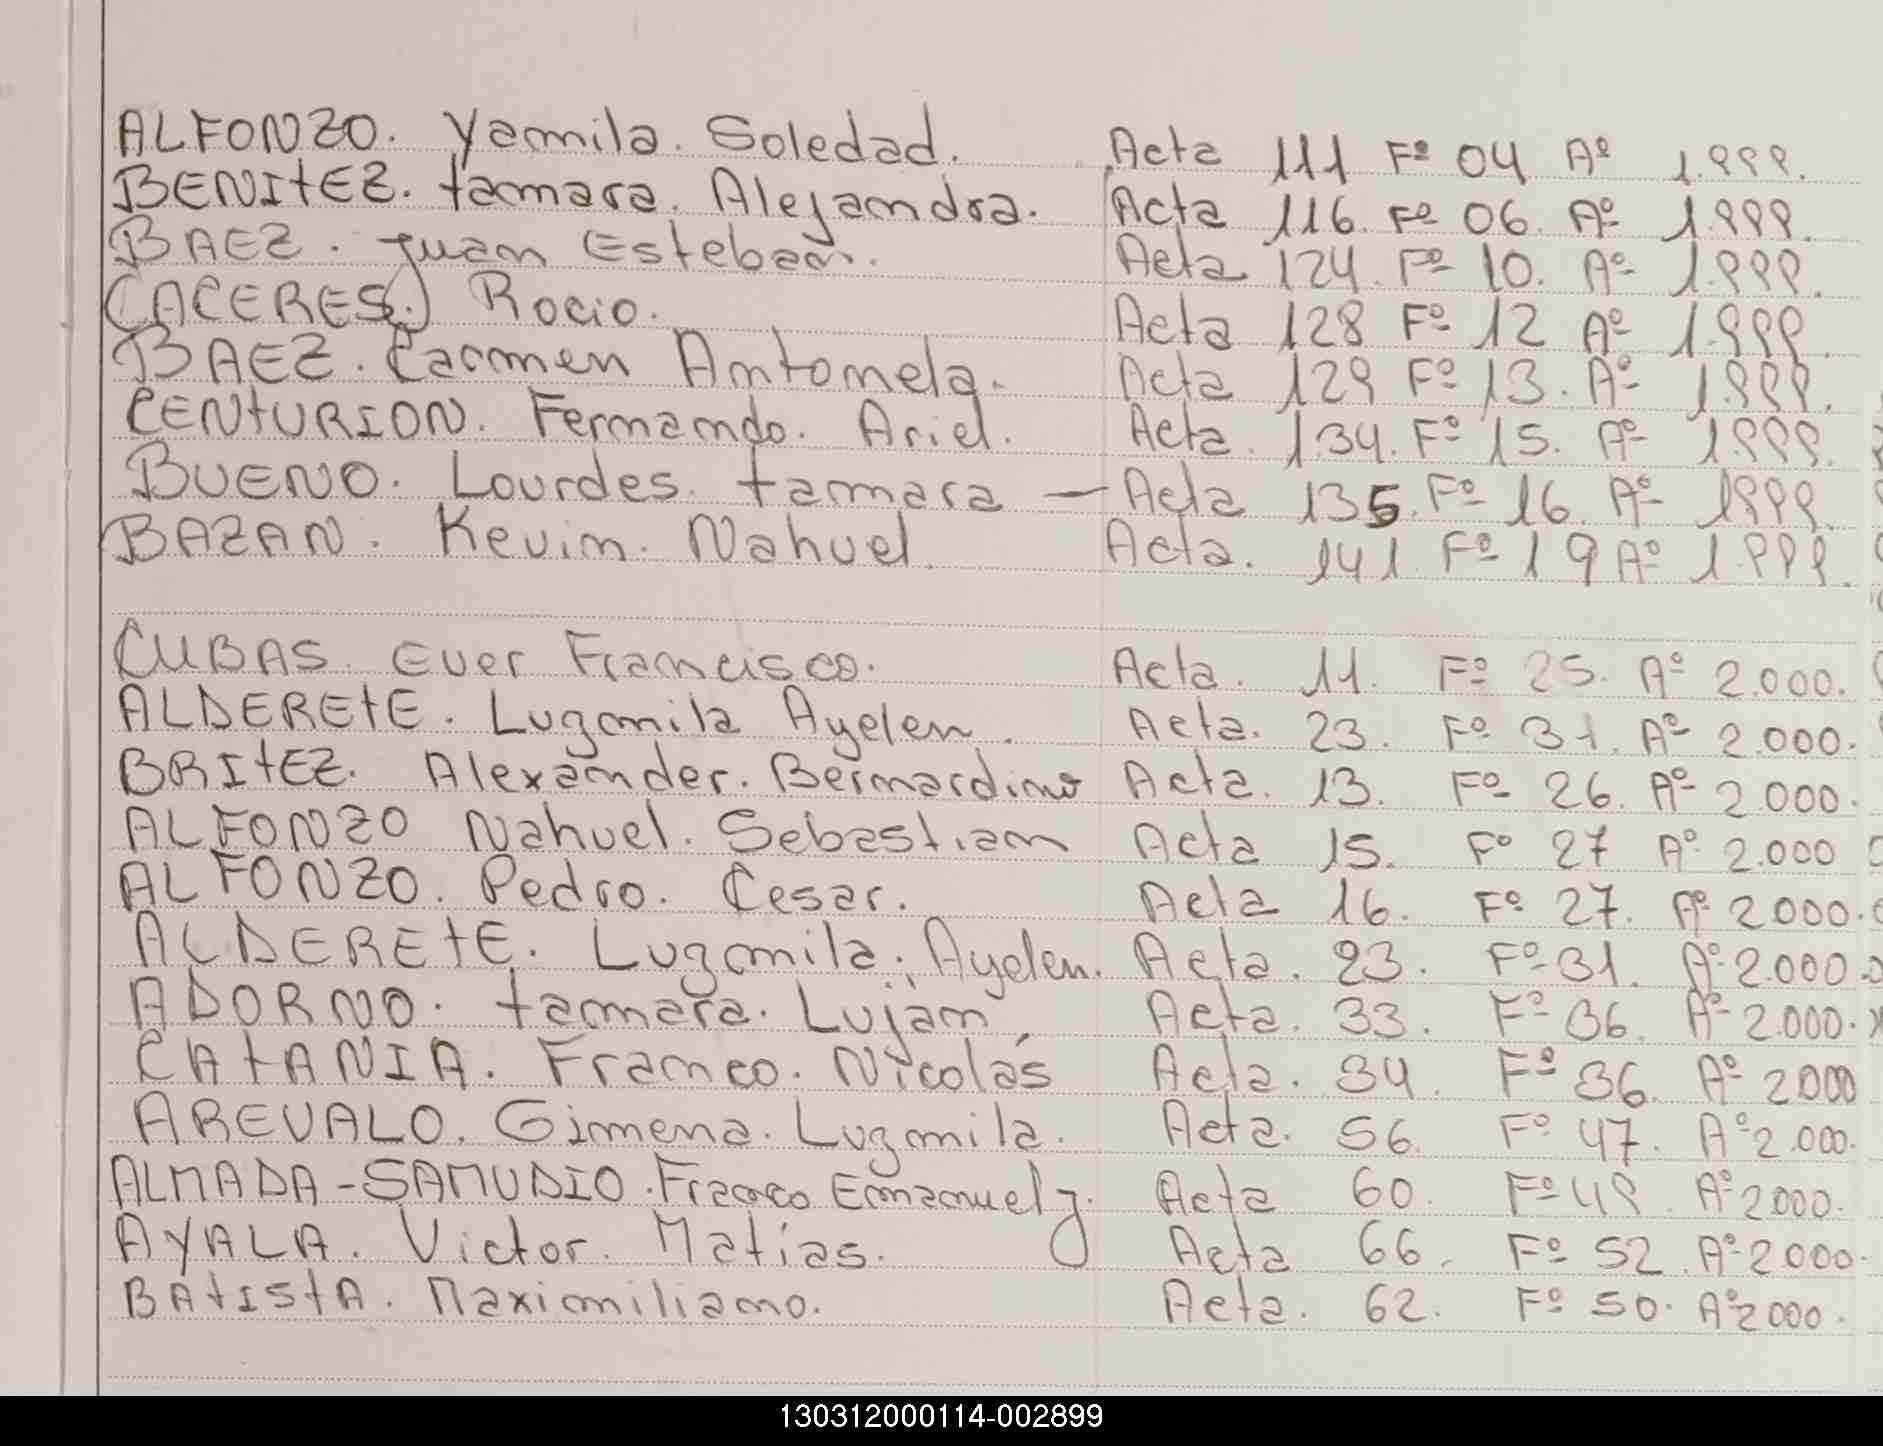 ALFONZO. Yamila. Soledad. Acta 111 Fº 04 Aº 1.999.
BENITEZ. tamara. Alejandra. Acta 116. Fº 06. Aº 1.999.
BAEZ. Juan Esteban. Acta 124. Fº 10. Aº 1.999.
CACERES. Rocio. Acta 128 Fº 12 Aº 1.999.
BAEZ. Carmen Antonela. Acta 129 Fº 13. Aº 1.999.
CENTURION. Fernando. Ariel. Acta. 134. Fº 15. Aº 1999.
BUENO. Lourdes. tamara — Acta 135. Fº 16. Aº 1999.
BAZAN. Kevin. Nahuel. Acta. 141 Fº 19 Aº 1.999.
CUBAS. Ever Francisco. Acta. 11. Fº 25. Aº 2.000.
ALDERETE. Luzmila Ayelen. Acta. 23. Fº 31. Aº 2.000.
BRITEZ. Alexander. Bernardino Acta. 13. Fº 26. Aº 2.000.
ALFONZO Nahuel. Sebastian Acta 15. Fº 27 Aº 2.000
ALFONZO. Pedro. Cesar. Acta 16. Fº 27. Aº 2.000.
ALDERETE. Luzmila. Ayelen. Acta. 23. Fº 31. Aº 2.000.
ADORNO. tamara. Lujan. Acta. 33. Fº 36. Aº 2.000.
CATANIA. Franco. Nicolás Acta. 34. Fº 36. Aº 2000
AREVALO. Gimena. Luzmila. Acta. 56. Fº 47. Aº 2.000.
ALMADA-SAMUDIO. Franco Emanuel J. Acta 60. Fº 49. Aº 2000.
AYALA. Victor. Matías. Acta 66. Fº 52. Aº 2.000.
BATISTA. Maximiliano. Acta. 62. Fº 50. Aº 2000.
130312000114-002899